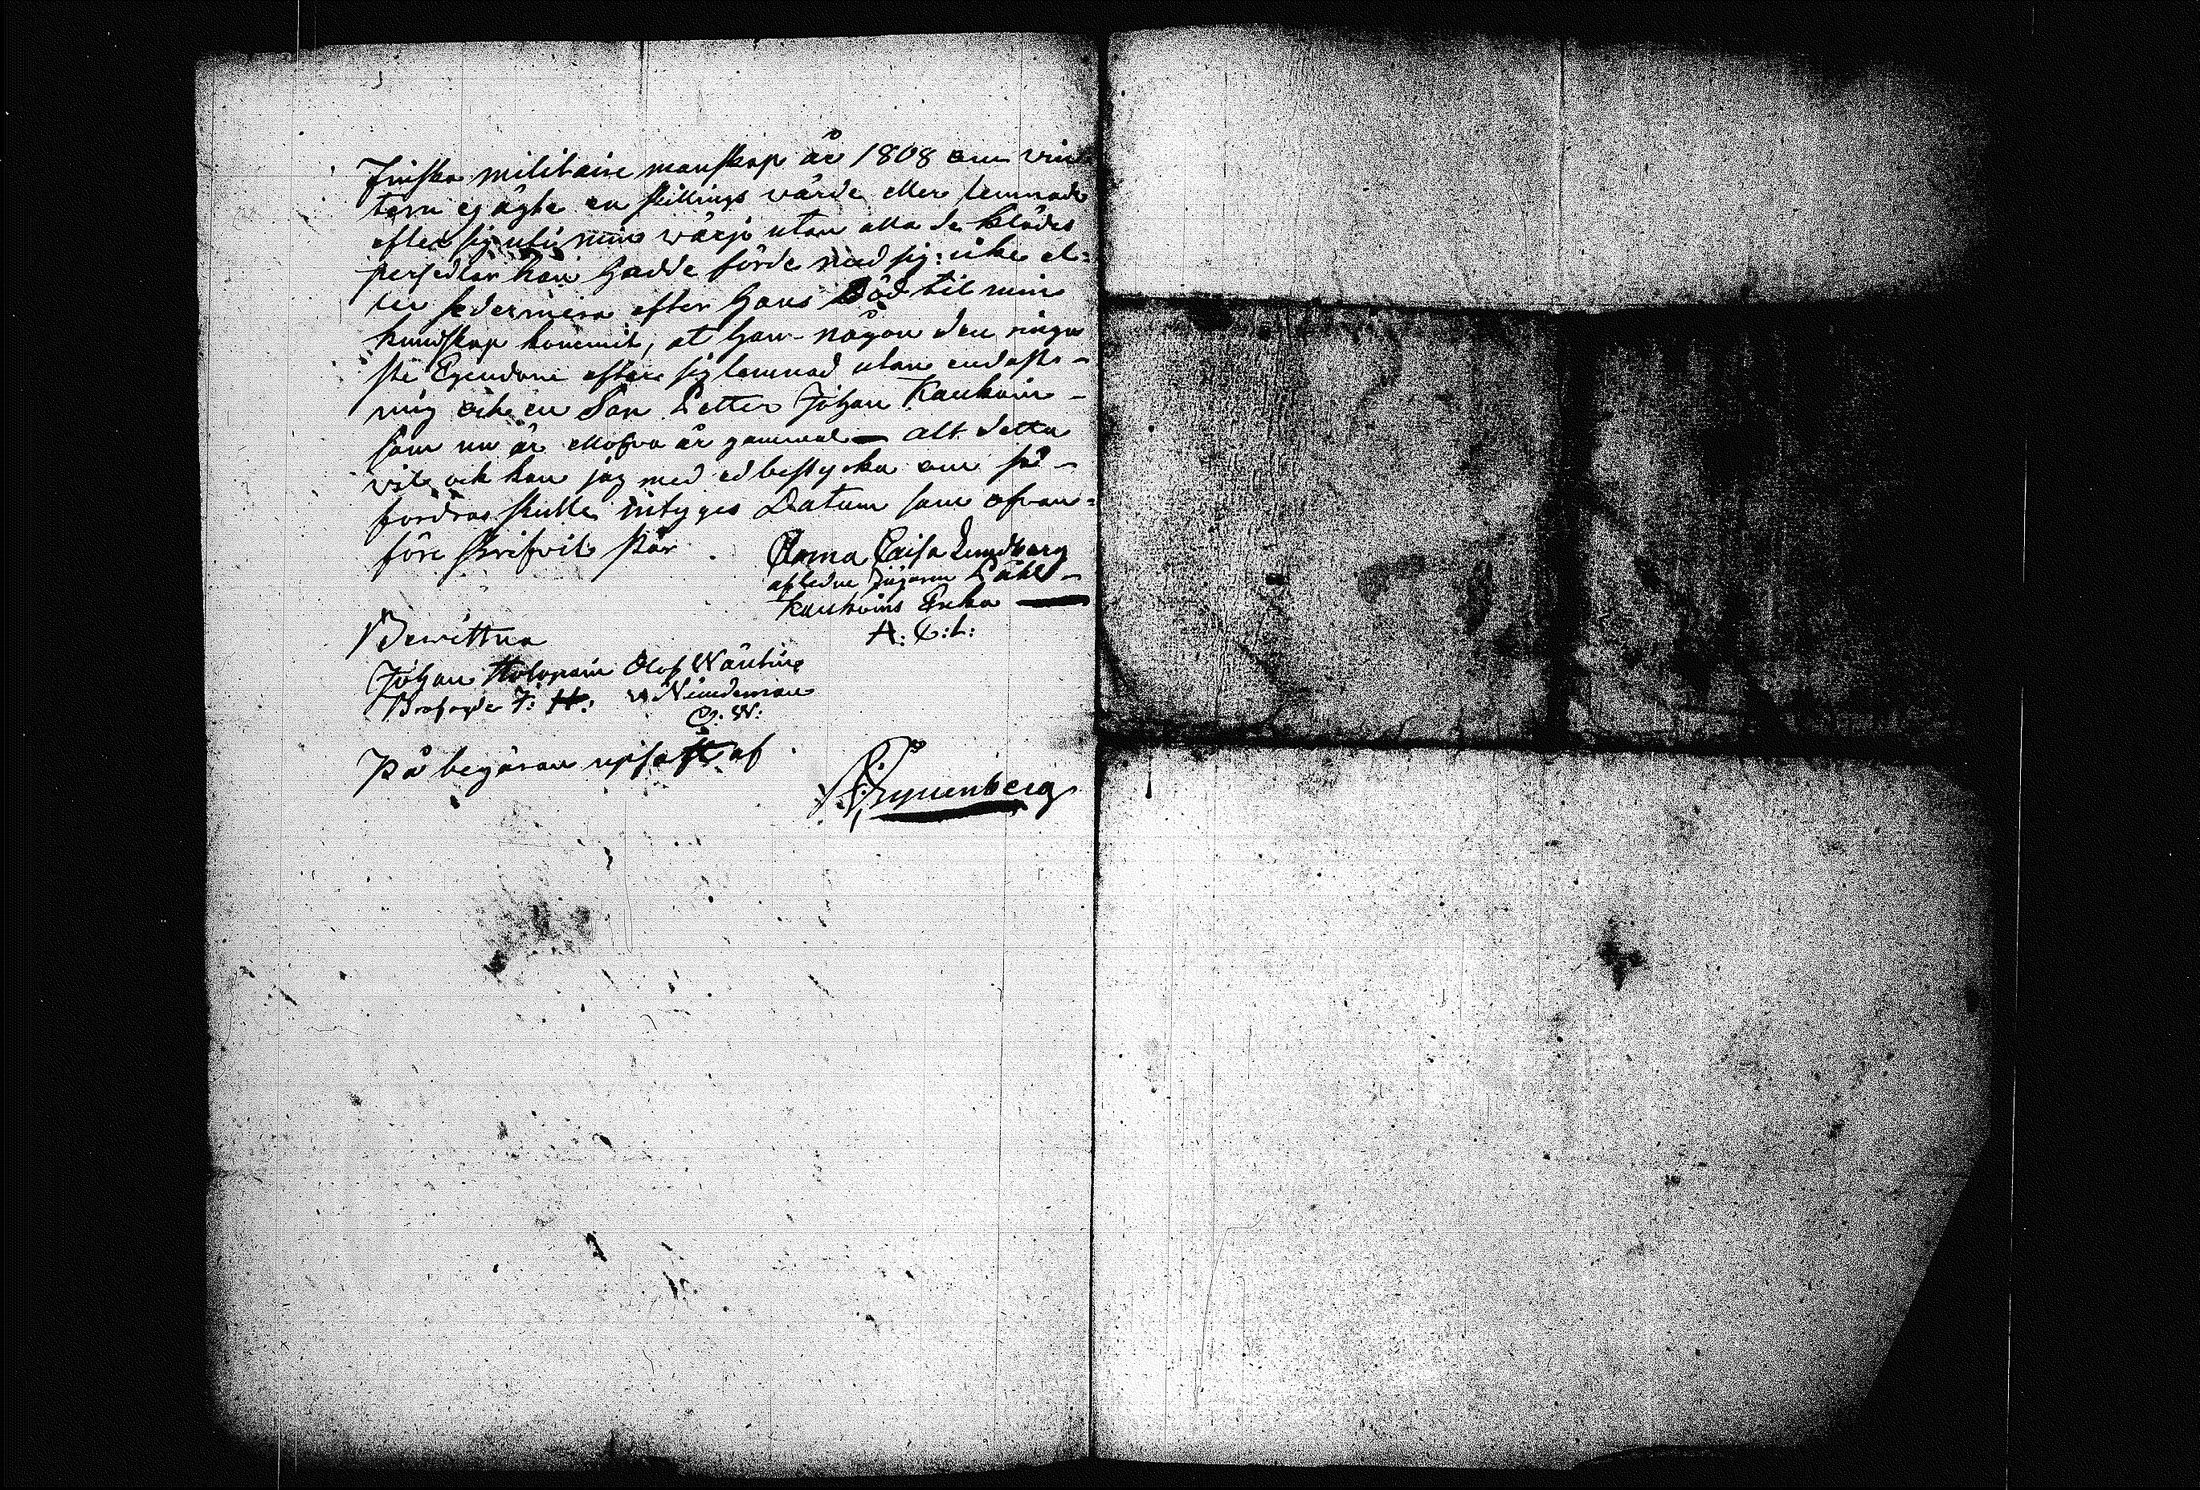 Finska militaire manskap år 1808 om vin-
tern ej ägte en skillings värde eller lemnade
efter sig uti min wärjo utan alla de klädes
persedlar han hadde förde med sig: icke el-
ler sedermera efter hans Död til min
kundskap kommit, at han någon den ringa
ste Egendom efter sig lemnad utan endast -
mig och en Son Petter Johan Kauhain -
som nu är ellofva år gammal — alt detta
vil och kan jag med ed bestyrka om så -
fordras skulle intyges Datum som ofvan-
före skrifvit står.
Anna Caisa Lundberg
afledne Jägaren Påhl -
Kauhains Enka —
A: C: L:
Bewittna
Johan Holopain Olof Wäntin
J: H: Nämdeman
O: W:
På begäran upsatt af
Brynenberg